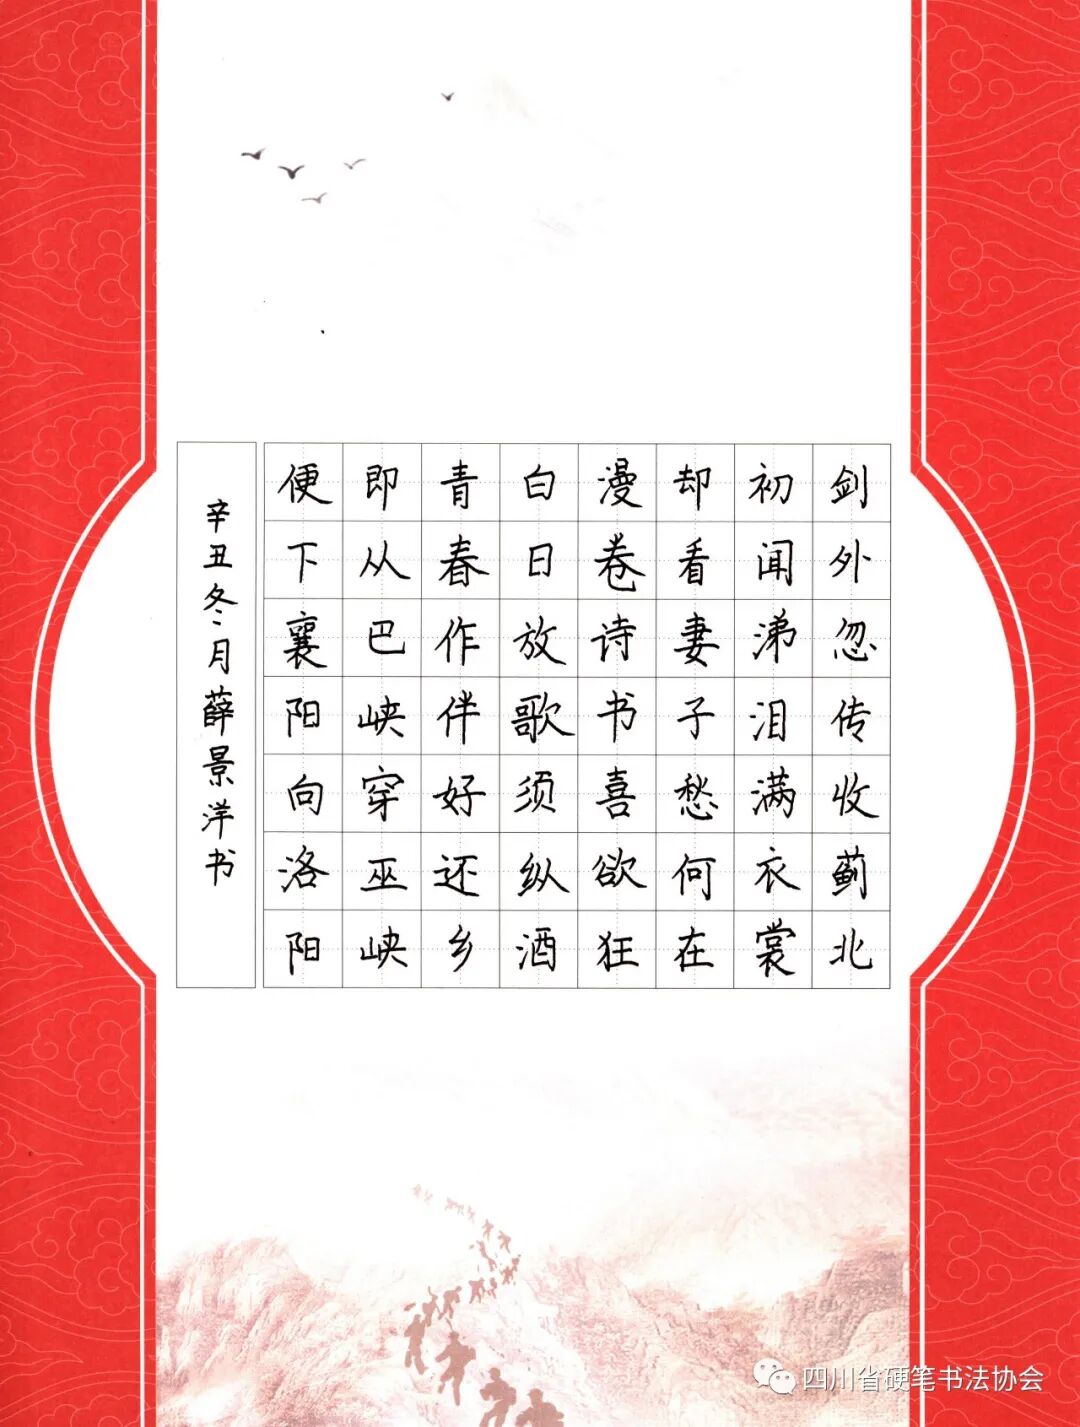 剑外忽传收蓟北
初闻涕泪满衣裳
却看妻子愁何在
漫卷诗书喜欲狂
白日放歌须纵酒
青春作伴好还乡
即从巴峡穿巫峡
便下襄阳向洛阳
辛丑冬月薛景洋书
四川省硬笔书法协会